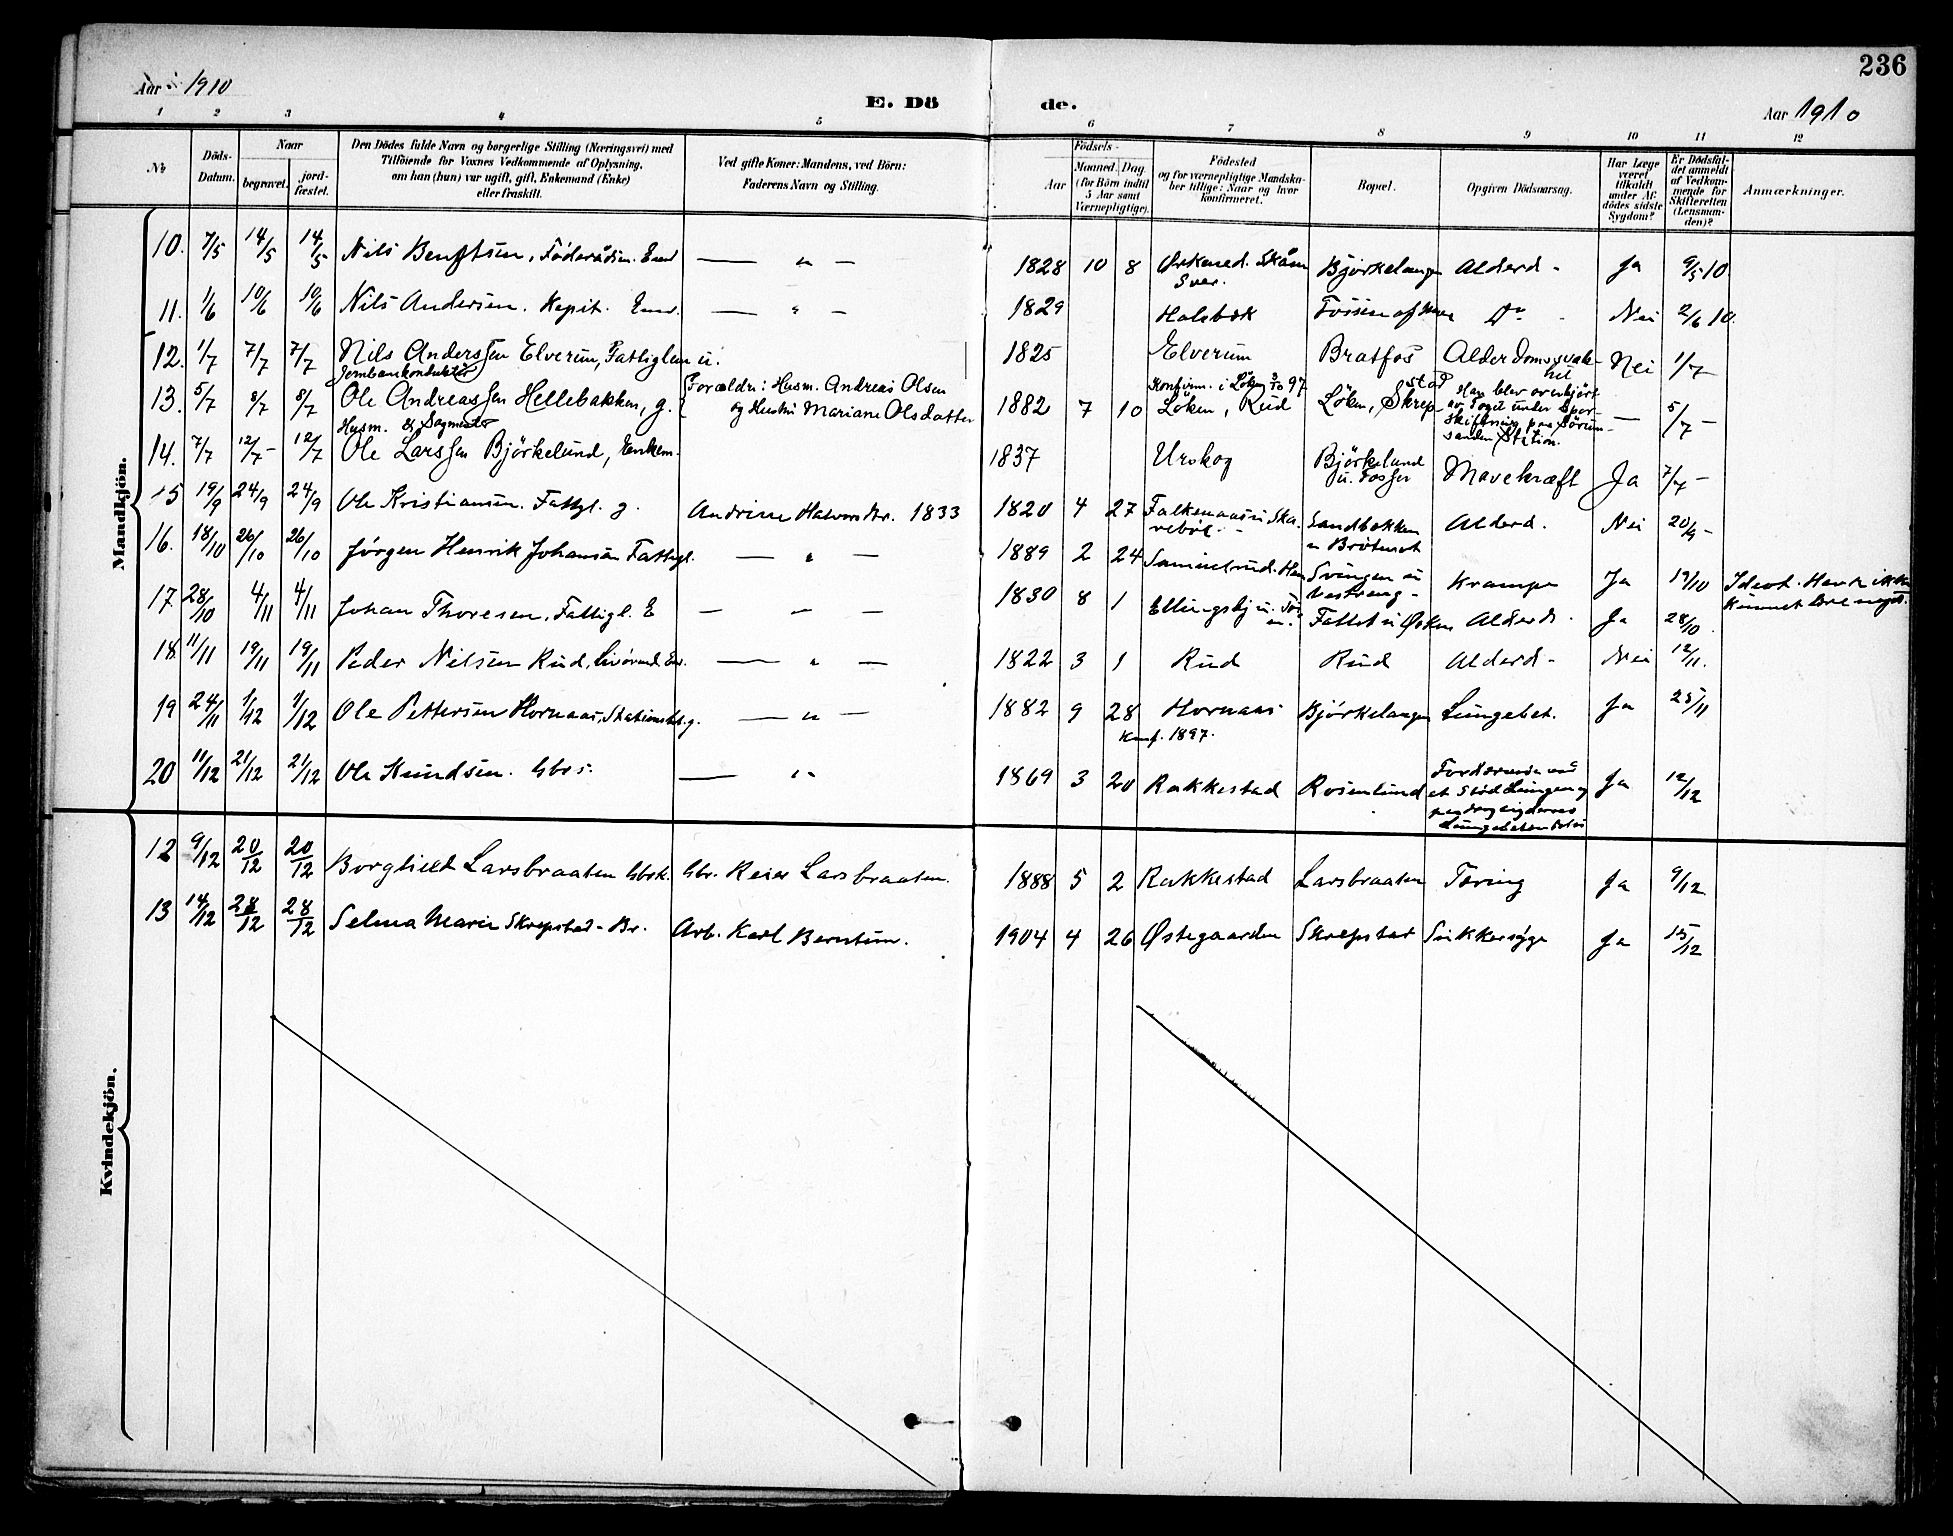 236
Aar 1910
E. Dö
de.
Aar 1910
1 2 3 4 5 6 7 8 9 10 11 12
No
Döds-Datum.
Naar
begravet.
jord-fæstet.
Den Dödes fulde Navn og borgerlige Stilling (Næringsvei) med
Tilföiende for Voxnes Vedkommende af Oplysning,
om han (hun) var ugift, gift, Enkemand (Enke)
eller fraskilt.
Ved gifte Koner: Mandens, ved Börn:
Faderens Navn og Stilling.
Födsels-
Aar
Maaned. Dag.
(for Börn indtil
5 Aar samt
Værnepligtige).
Födested
og for værnepligtige Mandska-
ber tillige: Naar og hvor
konfirmeret.
Bopæl.
Opgiven Dödsaarsag.
Har Læge
været
tilkaldt
under Af-
dödes sidste
Sygdom?
Er Dödsfal-
det anmeldt
af Vedkom-
mende for
Skifteretten
(Lensman-
den)?
Anmærkninger.
Mandkjön.
10. 7/5 14/5 14/5 Nils Bengtsen, Föderådsm. Enm. — " — 1828 10 8 Örkened. Skåne Sver. Björkelangen Alderd. Ja 9/5 10.
11. 1/6 10/6 10/6 Nils Andersen. Kapit. Enm. — " — 1829 Holsbæk Fossen Do Nei 2/6 10.
12. 1/7 7/7 7/7 Nils Anderssen Elverum, Fattiglem u. 1825 Elverum Bratfos Alderdomssvak-
het Nei 1/7
Jernbanekonduktör
13. 5/7 8/7 8/7 Ole Andreassen Hellebakken, g. Forældre: Husm. Andreas Olsen
og Hustru Mariane Olsdatter 1882 7 10 Konfirm. i Löken 3/10 97
Löken, Rud Löken, Skrep-
stad Han blev overkjört
av Toget under Spor-
skiftning paa Sörum-
sanden Station. — 5/7 –
Husm. & Sagmester
14. 7/7 12/7 – 12/7 Ole Larssen Björkelund, Enkem. 1837 Urskog Björkelund
u. Fosser Mavekræft Ja 7/7 –
15 19/9 24/9 24/9 Ole Kristiansen. Fattgl. g. Andrine Halvorsdtr. 1833 1820 4 27 Falkenaas u. Ska-
reböl. Sandbækken
u Bröteret Alderd. Nei 20/9 –
16. 18/10 26/10 26/10 Jörgen Henrik Johansen Fattigl. — " — 1889 2 24 Samuelrud. Svingen u
Vestreng Krampe Ja 19/10 Ideot. Havde ikke
kunnet
17 28/10 4/11 4/11 Johan Thoresen, Fattigl. E — — — 1830 8 1 Ellingsbj u. Fattst. u Alderd. Ja 28/10.
18 11/11 19/11 19/11 Peder Nilsen Rud, Livörend En. — " — 1822 3 1 Rud Rud Alderd. Nei 12/11.
19 24/11 1/12 1/12 Ole Pettersen Hornaas, g. — " — 1882 9 28 Hornaas
Konf. 1897. Björkelangen Lungebet. Ja 25/11
20 11/12 21/12 21/12 Ole Knudsen. Gbrs. — " 1869 3 20 Rakkestad Rosenlund Ja 12/12
Kvindekjön.
12 9/12 20/12 20/12 Borghild Larsbraaten Gbrk. Gbr. Reier Larsbraaten. 1888 5 2 Rakkestad Larsbraaten Tæring Ja 9/12
13 14/12 28/12 28/12 Selma Marie Skrepstad – Br. Arb. Karl Berntsen. 1904 4 26 Östegaarden Skrepstad Sukkersyge Ja 15/12